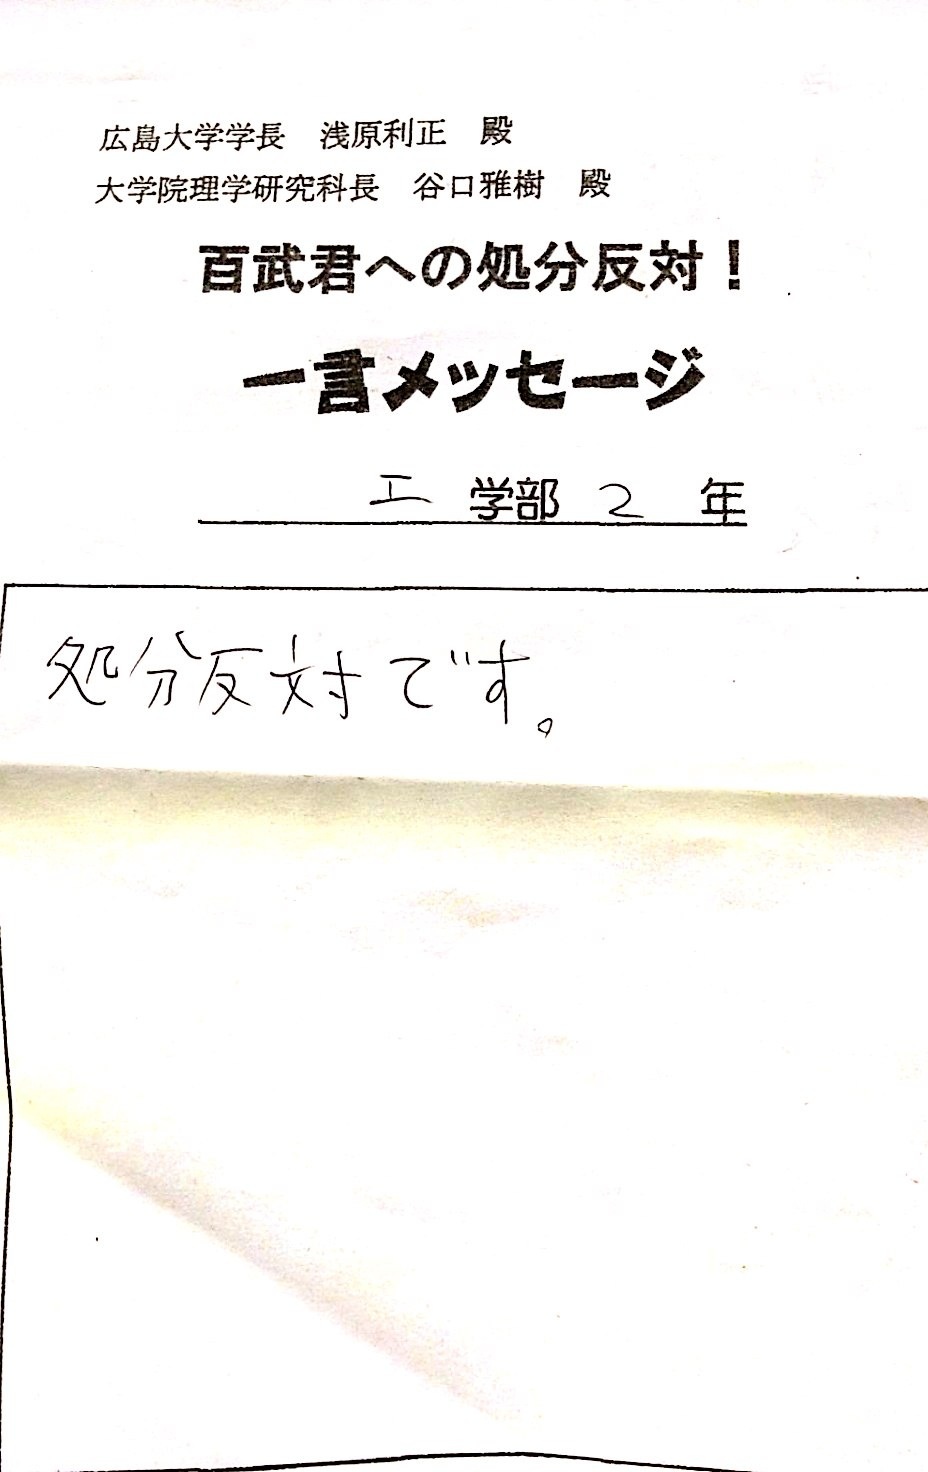 広島大学学長　浅原利正　殿
大学院理学研究科長　谷口雅樹　殿
百武君への処分反対！
一言メッセージ
工 学部 2 年
処分反対です。